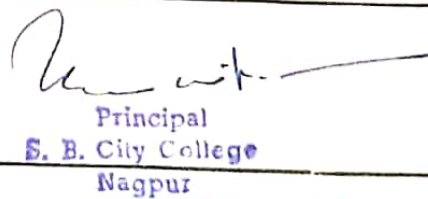 Principal
S. B. City College
Nagpur